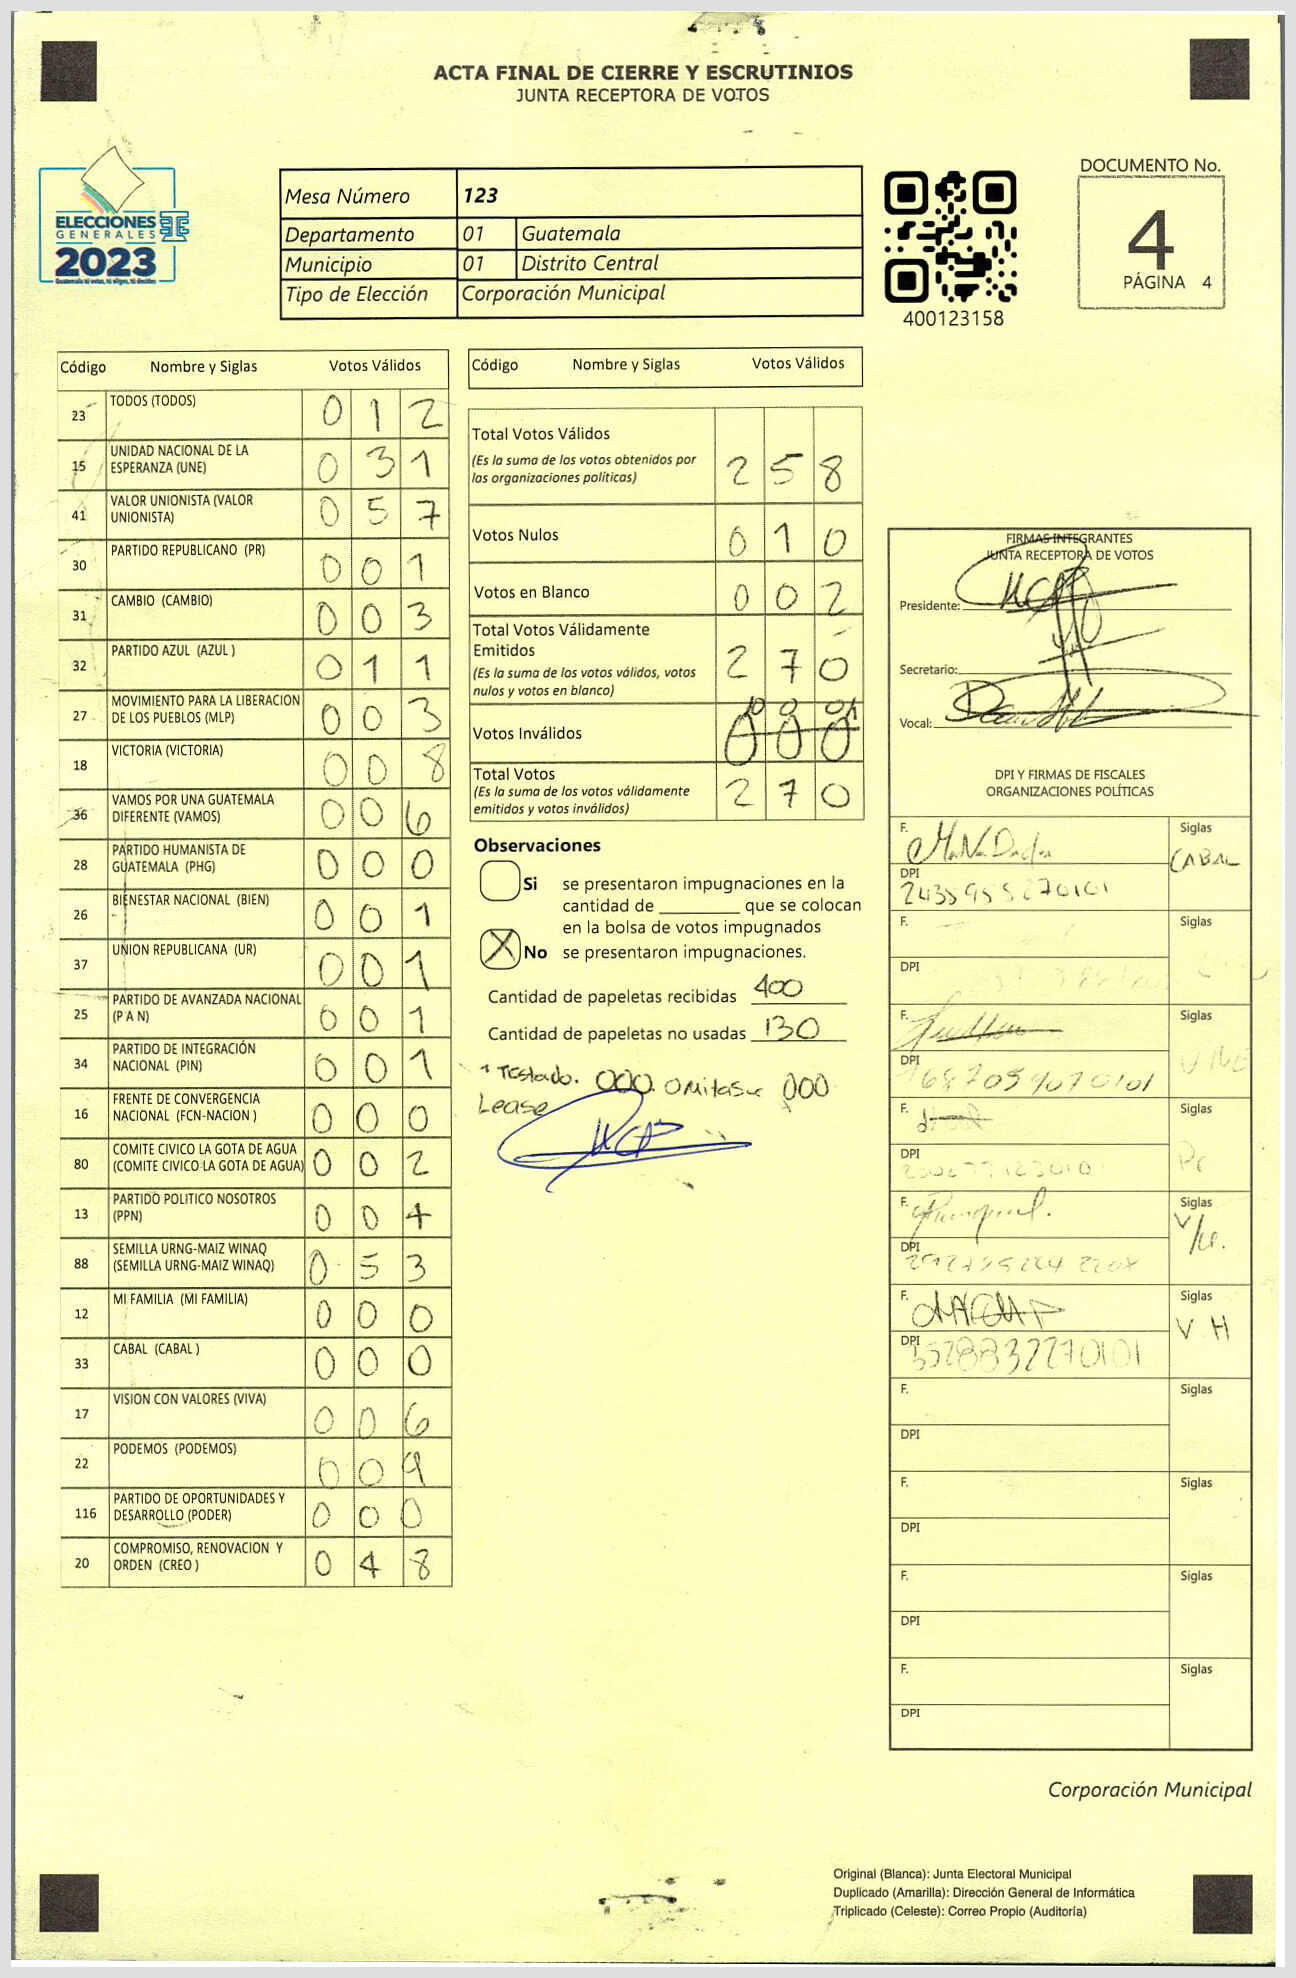 ACTA FINAL DE CIERRE Y ESCRUTINIOS
JUNTA RECEPTORA DE VOTOS
ELECCIONES
GENERALES
2023
Mesa Número 123
Departamento 01 Guatemala
Municipio 01 Distrito Central
Tipo de Elección Corporación Municipal
400123158
DOCUMENTO No.
4
PÁGINA 4
Código Nombre y Siglas Votos Válidos
23 TODOS (TODOS) 0 1 2
15 UNIDAD NACIONAL DE LA
ESPERANZA (UNE) 0 3 1
41 VALOR UNIONISTA (VALOR
UNIONISTA) 0 5 7
30 PARTIDO REPUBLICANO (PR) 0 0 1
31 CAMBIO (CAMBIO) 0 0 3
32 PARTIDO AZUL (AZUL ) 0 1 1
27 MOVIMIENTO PARA LA LIBERACION
DE LOS PUEBLOS (MLP) 0 0 3
18 VICTORIA (VICTORIA) 0 0 8
36 VAMOS POR UNA GUATEMALA
DIFERENTE (VAMOS) 0 0 6
28 PARTIDO HUMANISTA DE
GUATEMALA (PHG) 0 0 0
26 BIENESTAR NACIONAL (BIEN) 0 0 1
37 UNION REPUBLICANA (UR) 0 0 1
25 PARTIDO DE AVANZADA NACIONAL
(P A N) 0 0 1
34 PARTIDO DE INTEGRACIÓN
NACIONAL (PIN) 0 0 1
16 FRENTE DE CONVERGENCIA
NACIONAL (FCN-NACION ) 0 0 0
80 COMITE CIVICO LA GOTA DE AGUA
(COMITE CIVICO LA GOTA DE AGUA) 0 0 2
13 PARTIDO POLITICO NOSOTROS
(PPN) 0 0 4
88 SEMILLA URNG-MAIZ WINAQ
(SEMILLA URNG-MAIZ WINAQ) 0 5 3
12 MI FAMILIA (MI FAMILIA) 0 0 0
33 CABAL (CABAL ) 0 0 0
17 VISION CON VALORES (VIVA) 0 0 6
22 PODEMOS (PODEMOS) 0 0 9
116 PARTIDO DE OPORTUNIDADES Y
DESARROLLO (PODER) 0 0 0
20 COMPROMISO, RENOVACION Y
ORDEN (CREO ) 0 4 8
Código Nombre y Siglas Votos Válidos
Total Votos Válidos
(Es la suma de los votos obtenidos por
las organizaciones políticas) 2 5 8
Votos Nulos 0 1 0
Votos en Blanco 0 0 2
Total Votos Válidamente
Emitidos
(Es la suma de los votos válidos, votos
nulos y votos en blanco) 2 7 0
Votos Inválidos 0 0 0
Total Votos
(Es la suma de los votos válidamente
emitidos y votos inválidos) 2 7 0
Observaciones
Si se presentaron impugnaciones en la
cantidad de ________ que se colocan
en la bolsa de votos impugnados
X No se presentaron impugnaciones.
Cantidad de papeletas recibidas 400
Cantidad de papeletas no usadas 130
Testado. 000. Omitase 000
Lease
FIRMAS INTEGRANTES
JUNTA RECEPTORA DE VOTOS
Presidente:
Secretario:
Vocal:
DPI Y FIRMAS DE FISCALES
ORGANIZACIONES POLÍTICAS
F. Siglas
CABAL
DPI
F. Siglas
DPI
F. Siglas
UNE
DPI
F. Siglas
DPI
F. Siglas
DPI
F. Siglas
V H
DPI
F. Siglas
DPI
F. Siglas
DPI
F. Siglas
DPI
F. Siglas
DPI
Corporación Municipal
Original (Blanca): Junta Electoral Municipal
Duplicado (Amarilla): Dirección General de Informática
Triplicado (Celeste): Correo Propio (Auditoría)